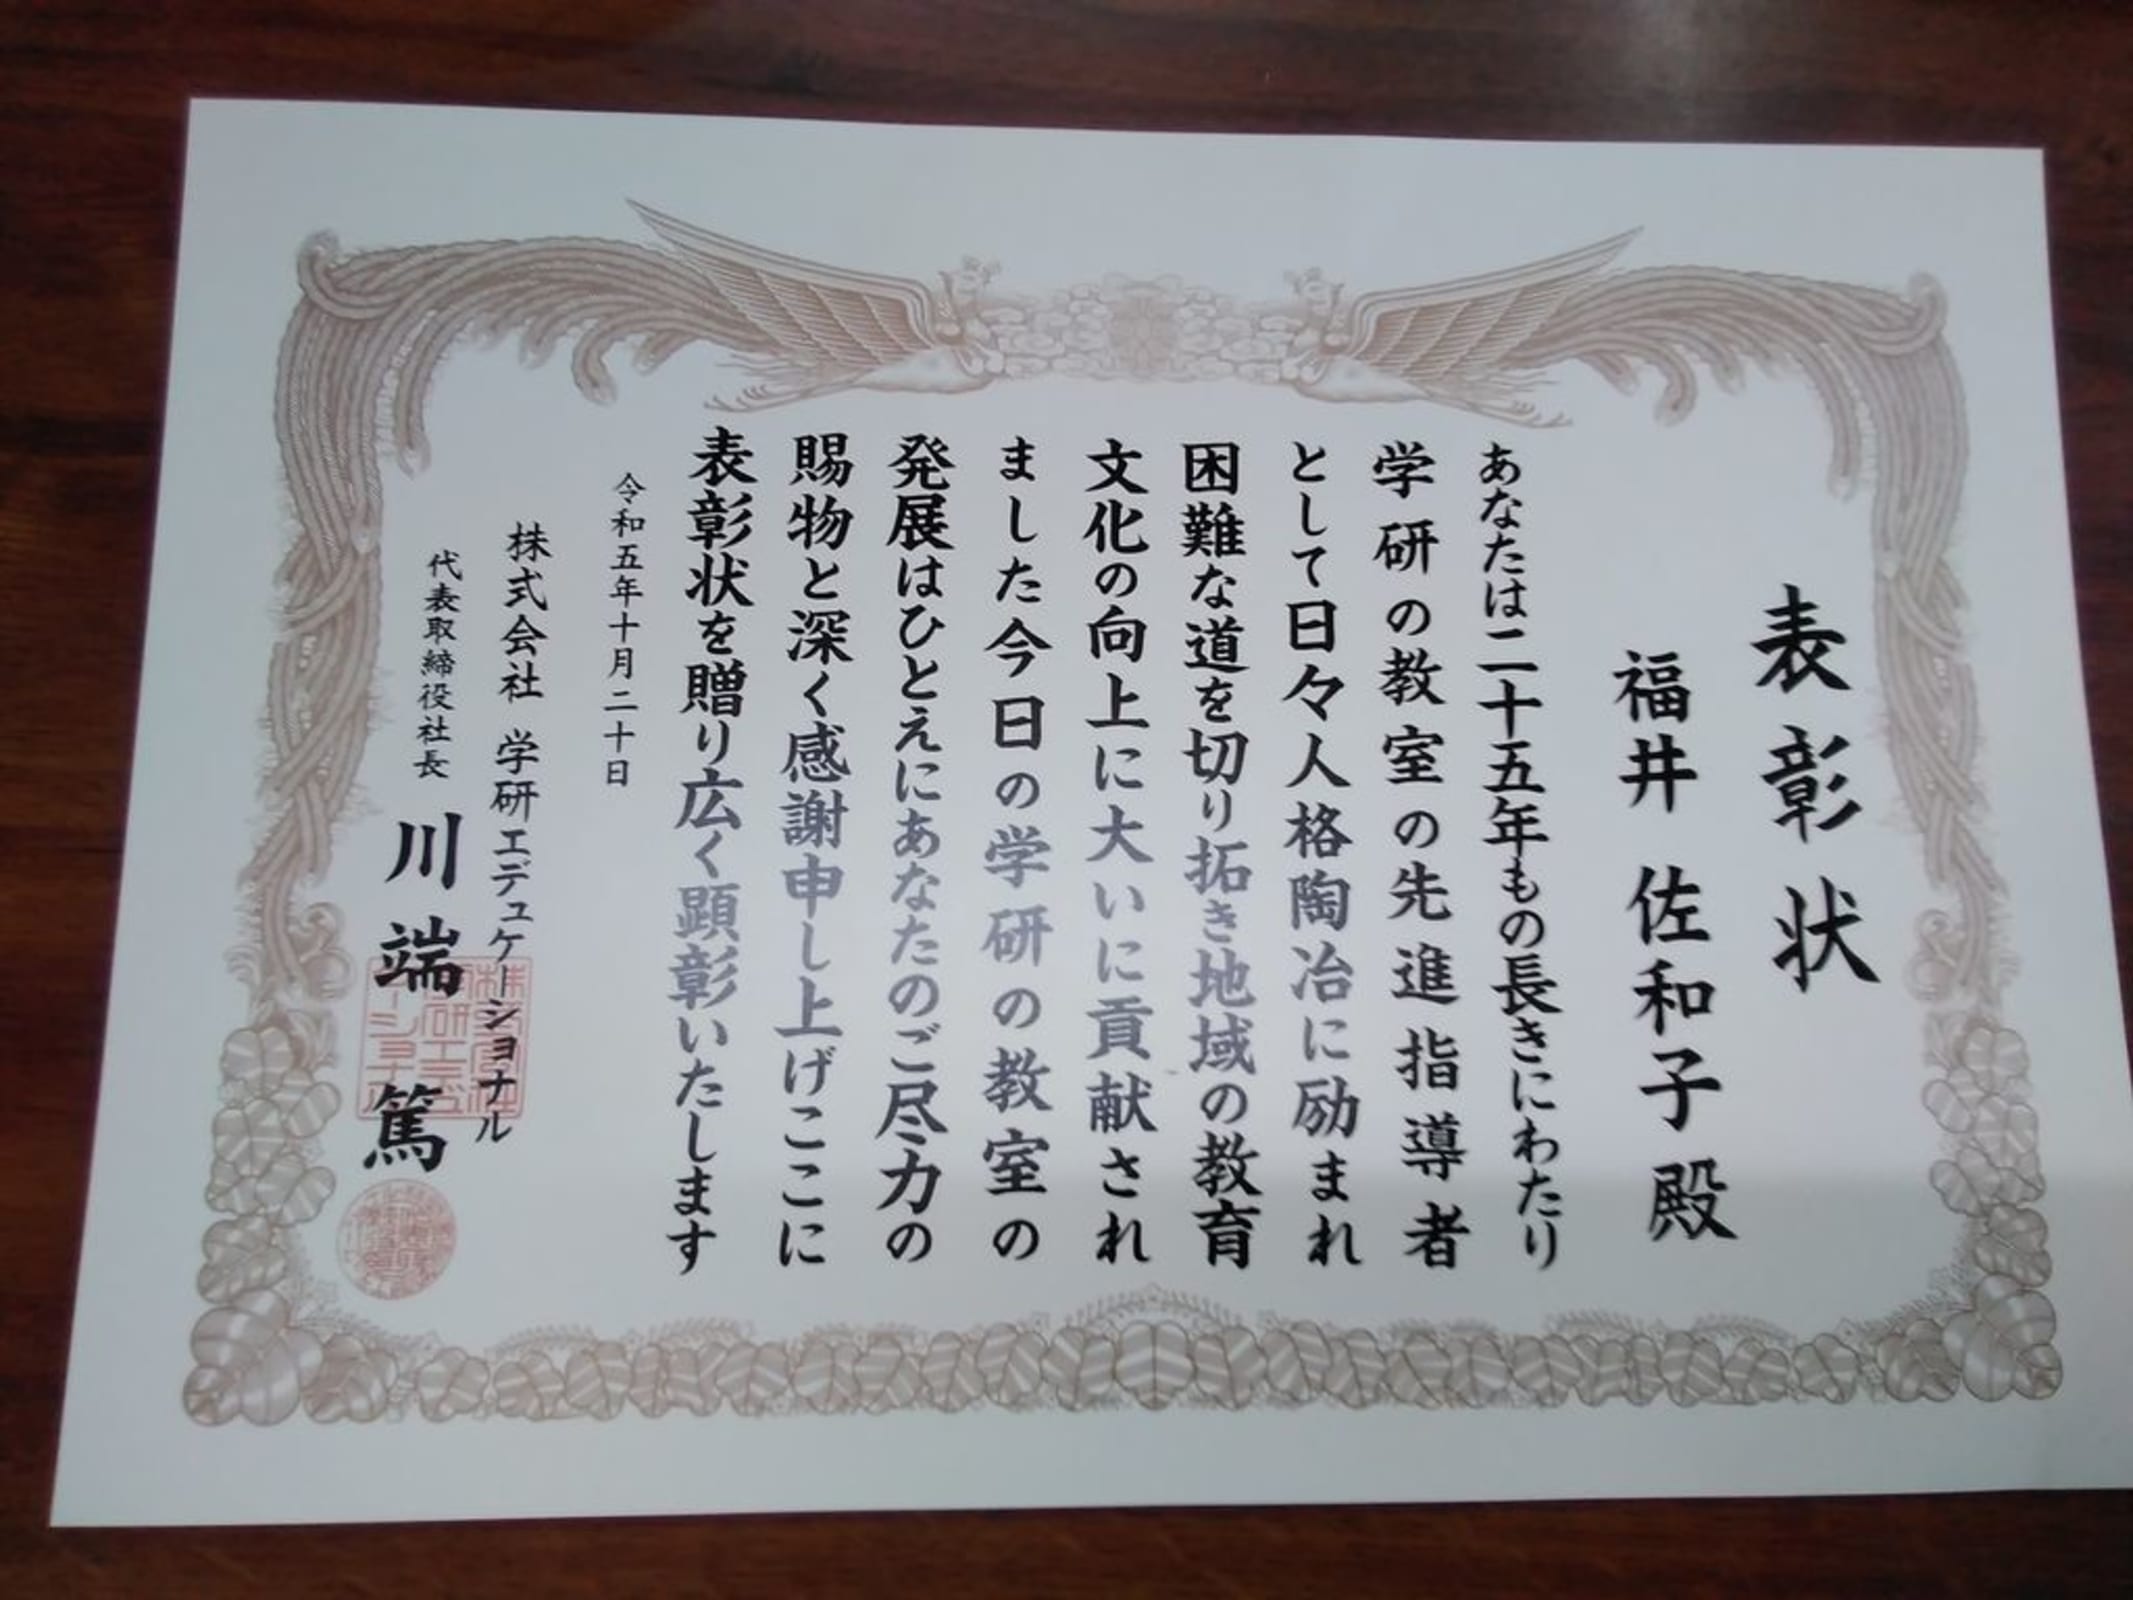 表彰状
福井 佐和子 殿
あなたは二十五年もの長きにわたり
学研の教室の先進指導者
として日々人格陶冶に励まれ
困難な道を切り拓き地域の教育
文化の向上に大いに貢献され
ました今日の学研の教室の
発展はひとえにあなたのご尽力の
賜物と深く感謝申し上げここに
表彰状を贈り広く顕彰いたします
令和五年十月二十日
株式会社 学研エデュケーショナル
代表取締役社長 川端 篤